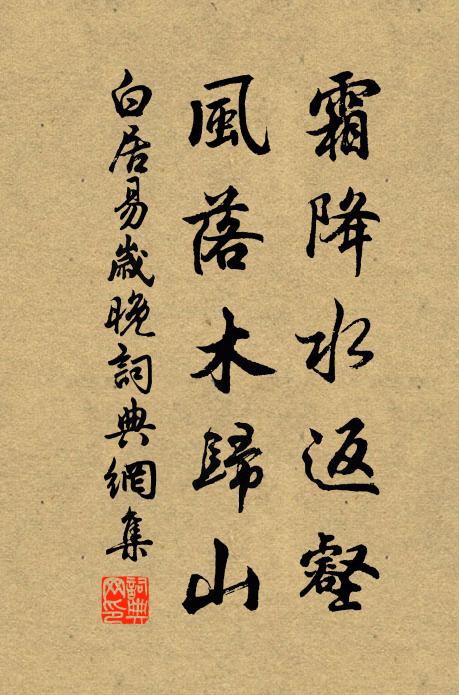 霜降水返壑
風落木歸山
白居易歲晚詞典網集
詞典網印